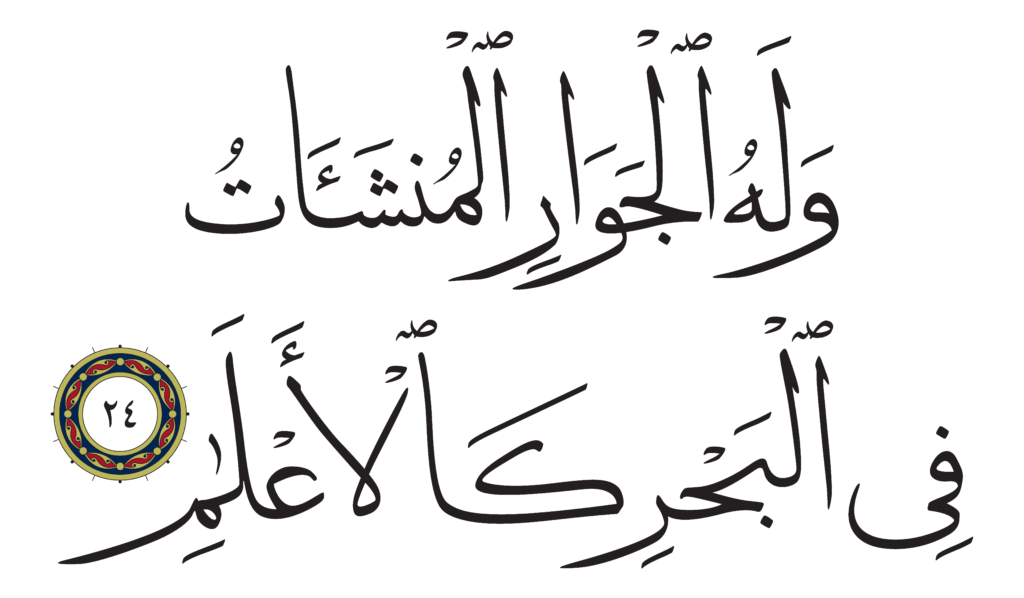 وَلَهُ ٱلْجَوَارِ ٱلْمُنشَـَٔاتُ
فِى ٱلْبَحْرِ كَٱلْأَعْلَـٰمِ ٢٤